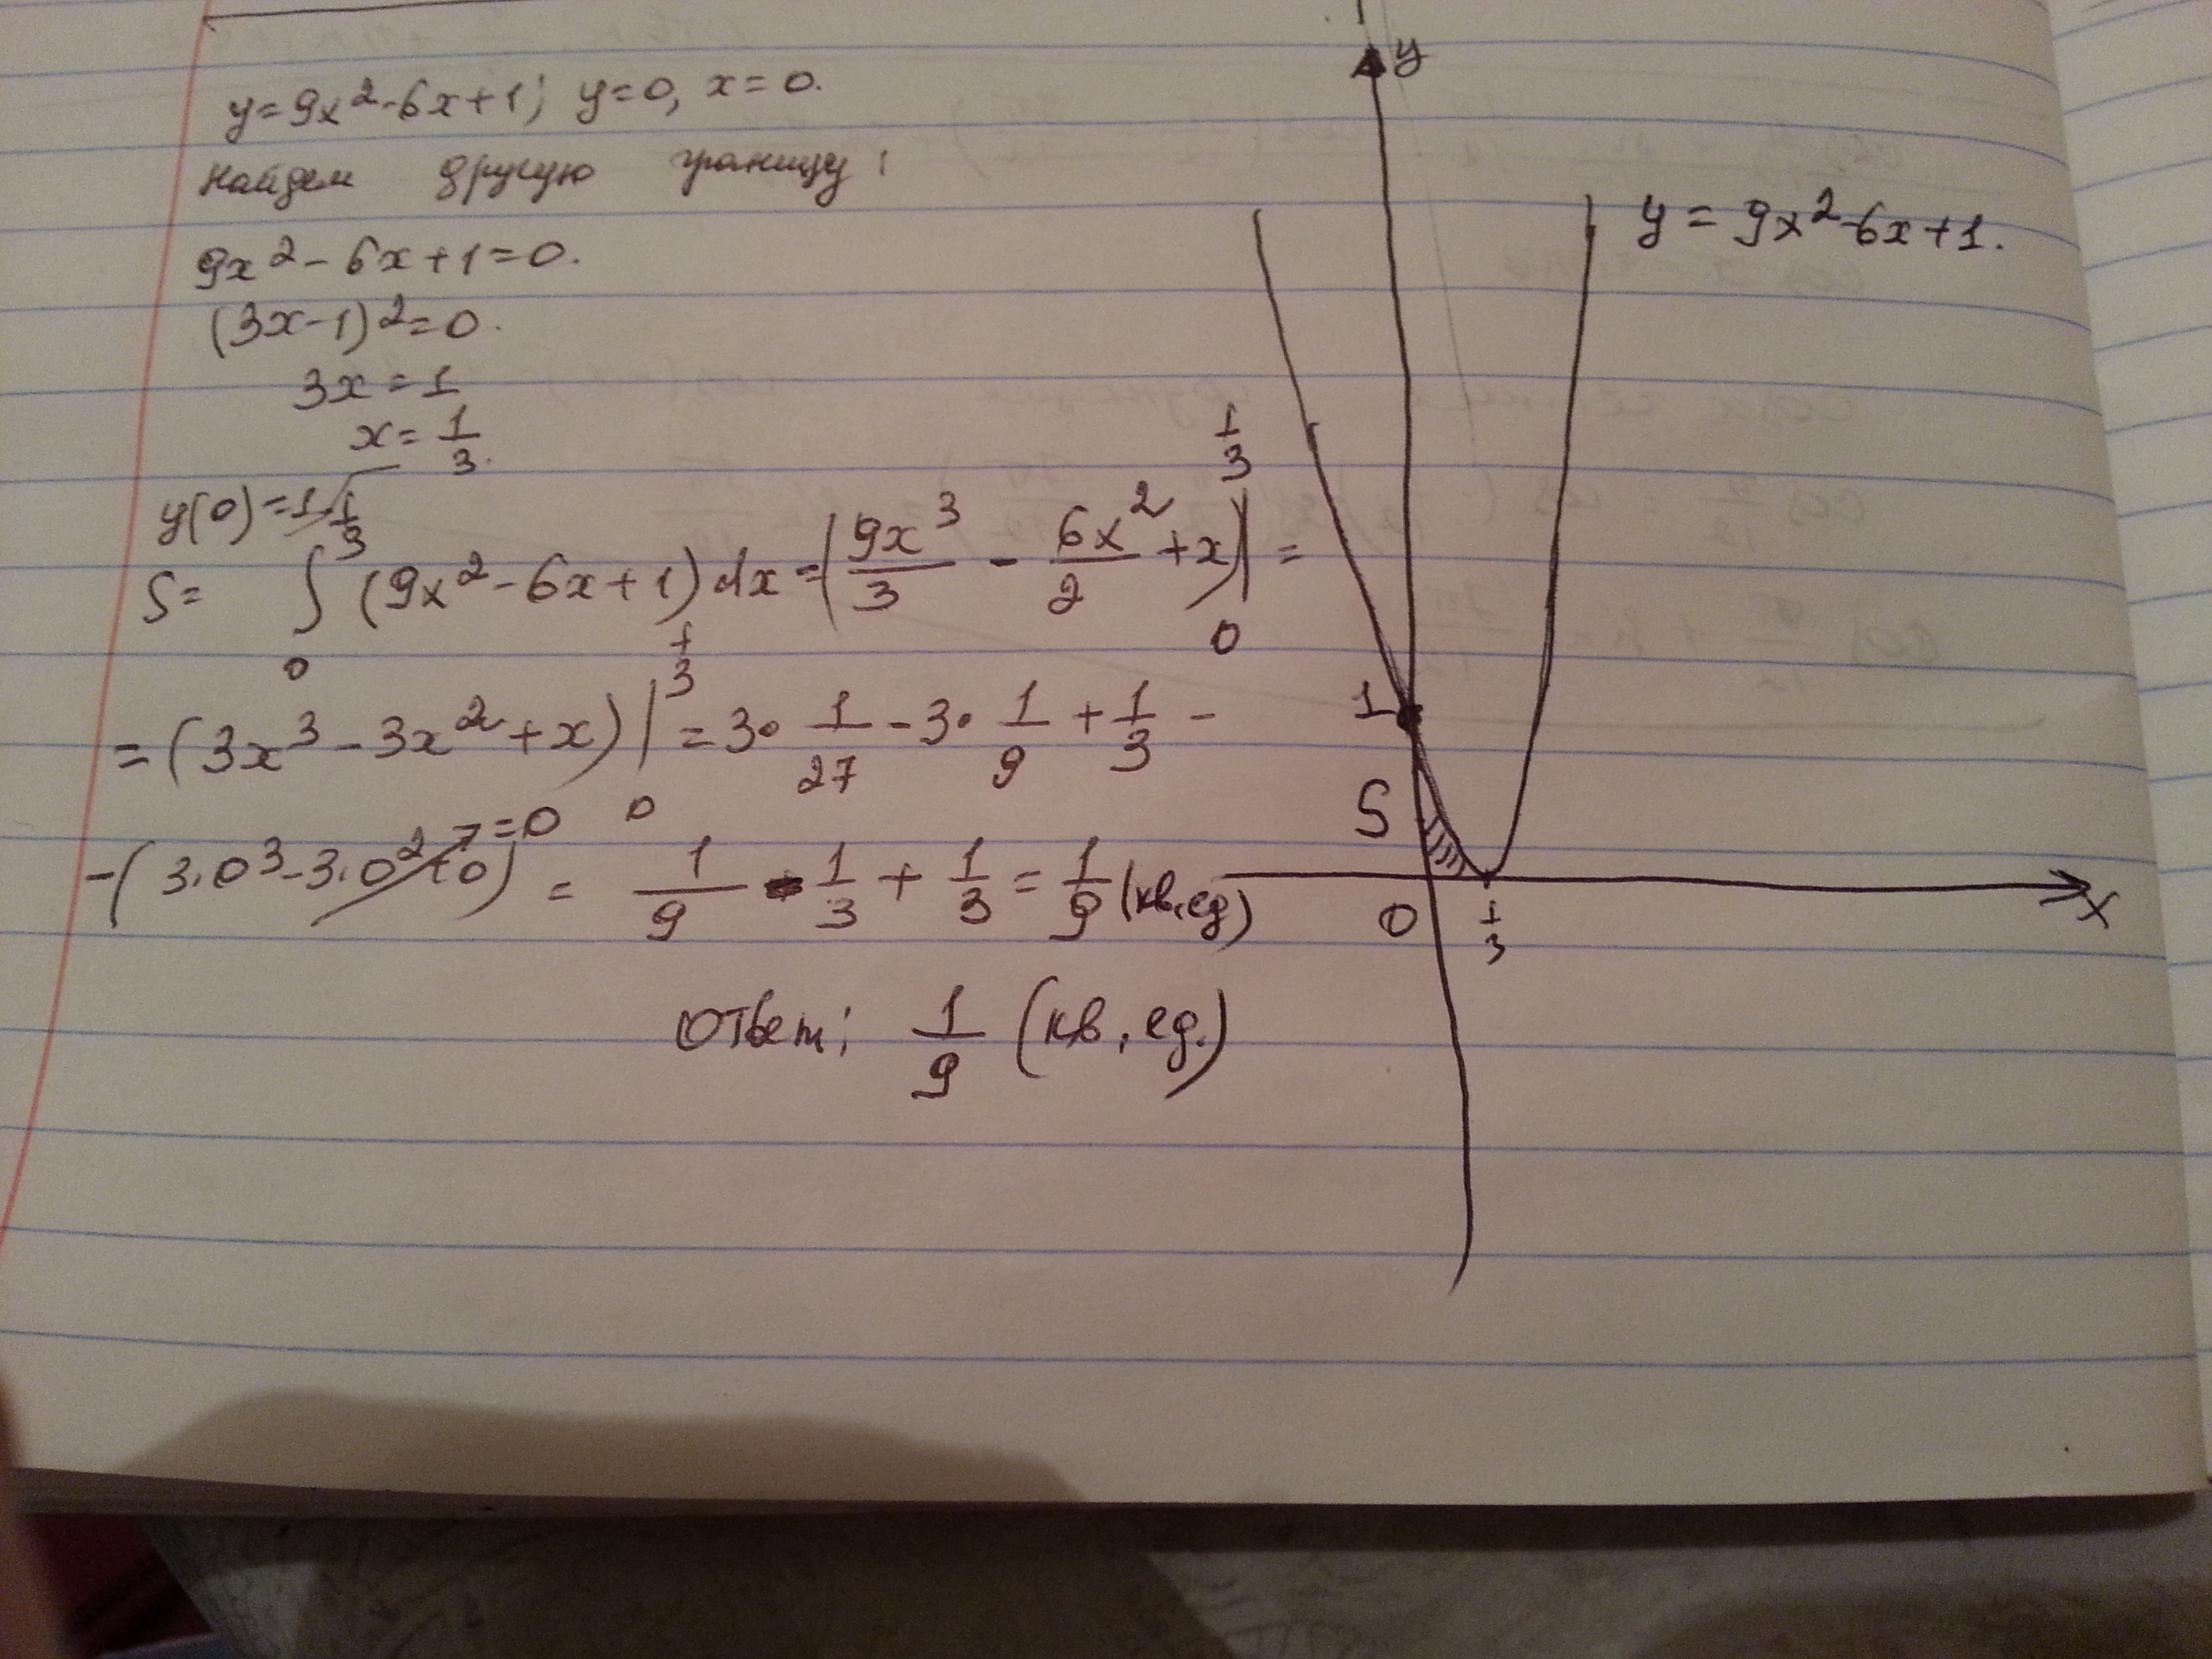 y=9x²-6x+1; y=0, x=0.
Найдем другую границу:
9x²-6x+1=0.
(3x-1)²=0.
3x=1
x=1/3.
y(0)=1
S= ∫₀^(1/3) (9x²-6x+1)dx=(9x³/3 - 6x²/2 +x)|₀^(1/3) =
=(3x³-3x²+x)|₀^(1/3) =3·1/27-3·1/9+1/3-
-(3·0³-3·0²+0)=0 = 1/9-1/3+1/3=1/9(кв.ед)
Ответ: 1/9 (кв.ед.)
y
y=9x²-6x+1.
1
S
0
1/3
x